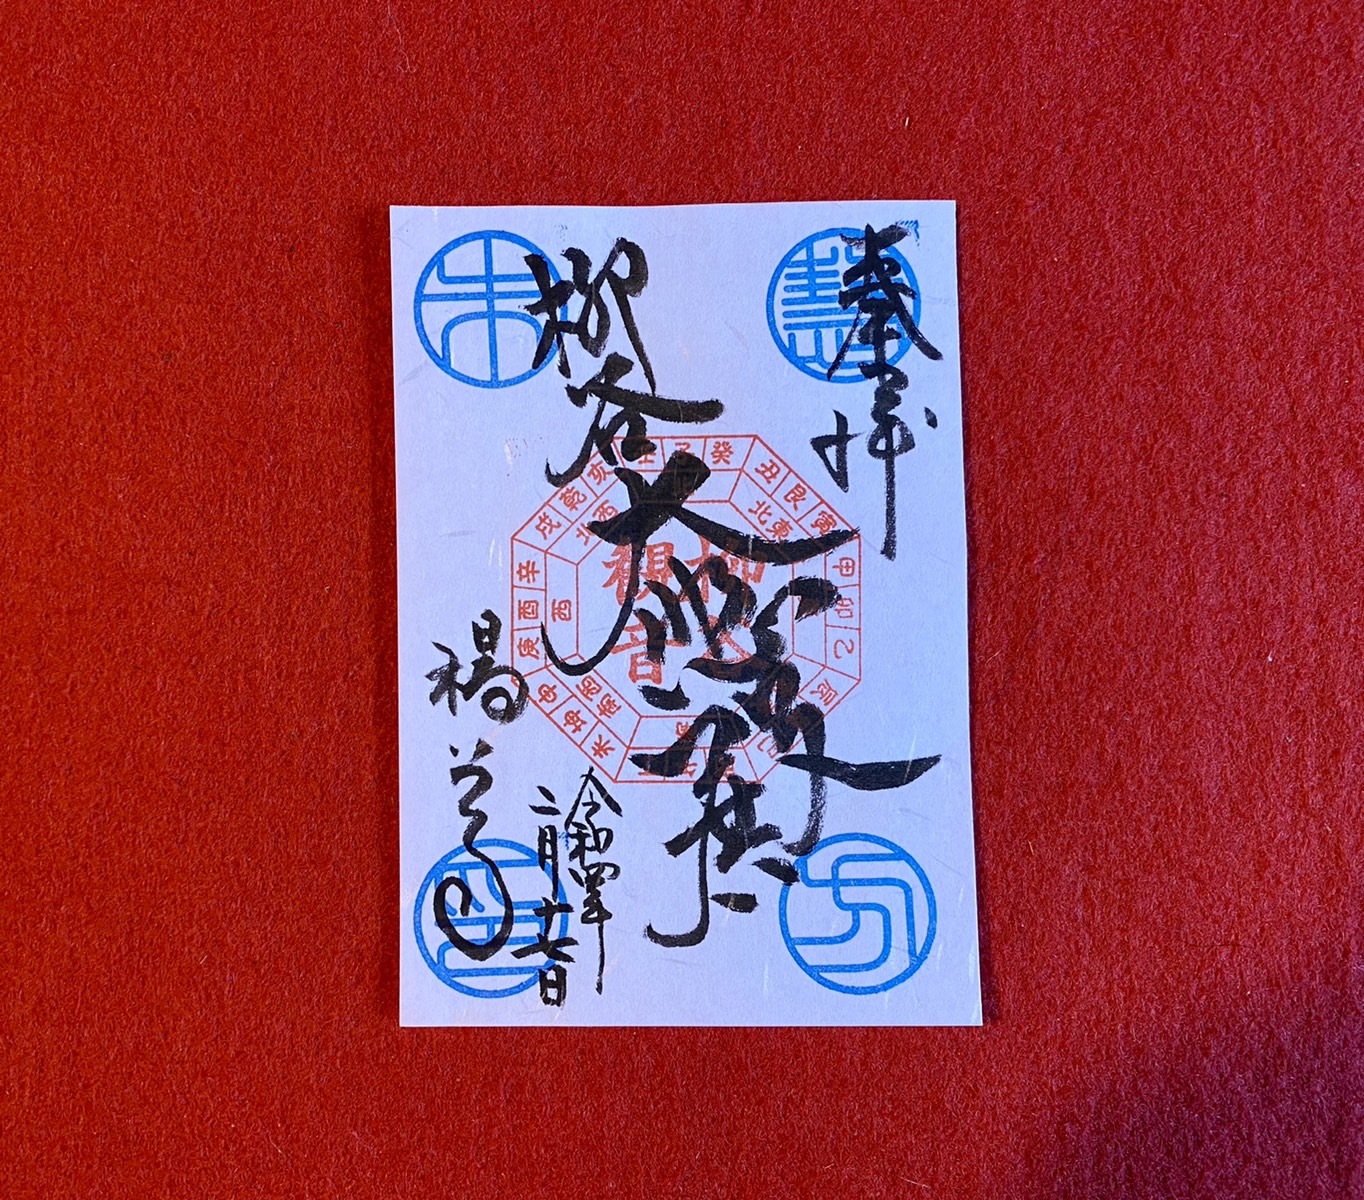 奉拝
柳谷
大
令和四年
二月十七日
楊谷
慧
方
朱
印
柳谷
観音
子 癸 丑 艮 寅 甲 卯 乙 辰 巳
未 坤 申 庚 酉 辛 戌 乾 亥 壬
北東
南西
西
北西